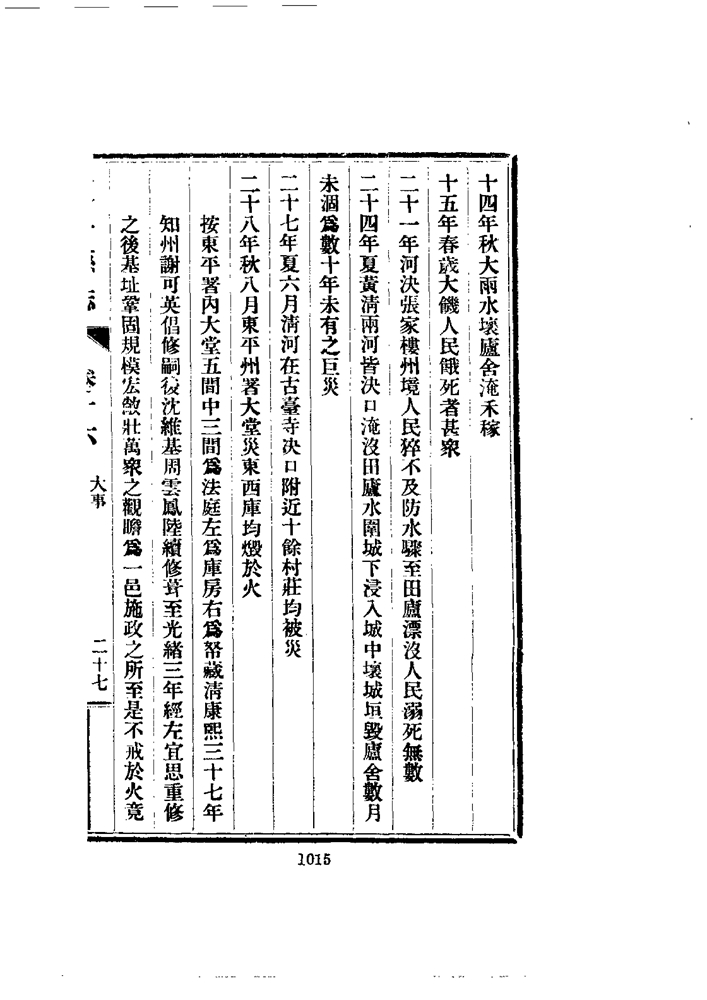 十四年秋大雨水壞廬舍淹禾稼
十五年春歲大饑人民餓死者甚衆
二十一年河決張家樓州境人民猝不及防水驟至田廬漂沒人民溺死無數
二十四年夏黃淸兩河皆決口淹沒田廬水圍城下浸入城中壞城垣毀廬舍數月
未涸爲數十年未有之巨災
二十七年夏六月淸河在古臺寺决口附近十餘村莊均被災
二十八年秋八月東平州署大堂災東西庫均燬於火
按東平署內大堂五間中三間爲法庭左爲庫房右爲帑藏淸康熙三十七年
知州謝可英倡修嗣後沈維基周雲鳳陸續修葺至光緖三年經左宜思重修
之後基址鞏固規模宏敞壯萬衆之觀瞻爲一邑施政之所至是不戒於火竟
志 卷十六 大事 二十七
1015